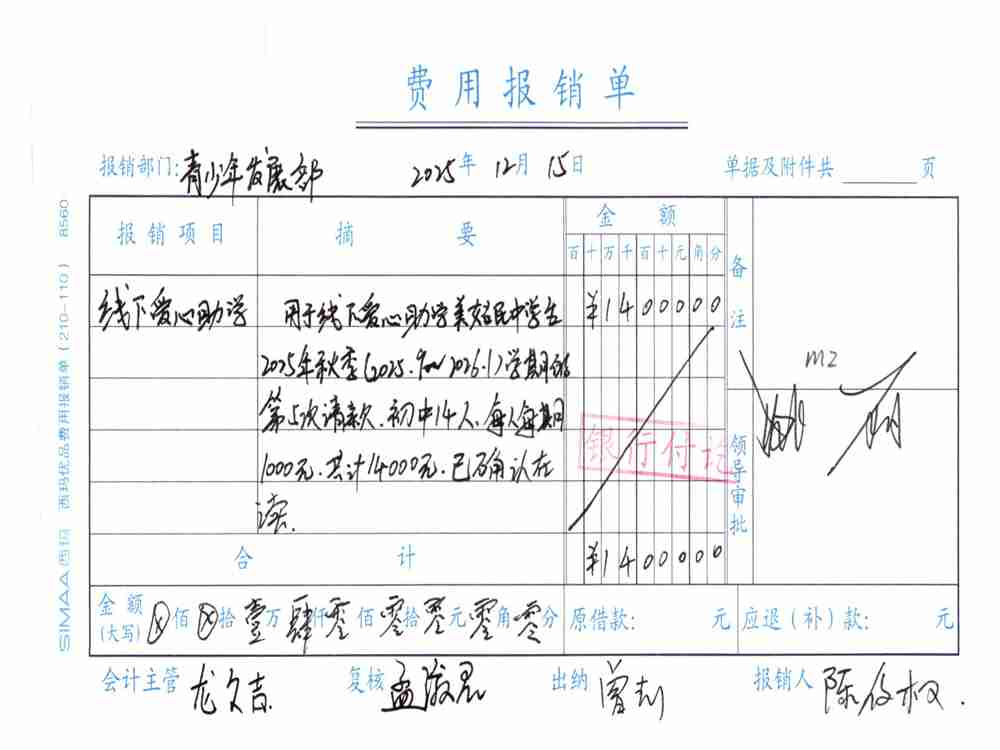 费用报销单
报销部门:青少年发展部 2025年 12月 15日 单据及附件共 页
报销项目 摘要 金额 备注
百十万千百十元角分
线下爱心助学 用于线下爱心助学美姑民中学生 ¥1400000
2025年秋季(2025.9~2026.1)学期的
第5次请款.初中14人.每人每期
1000元.共计14000元.已确认在
读.
银行付讫
MZ
领导审批
合计 ¥1400000
金额(大写) ⊗佰⊗拾壹万肆仟零佰零拾零元零角零分 原借款: 元 应退(补)款: 元
会计主管 复核 出纳 曾莉 报销人 陈俊权.
SIMAA西玛 西玛优品费用报销单(210-110) 8560